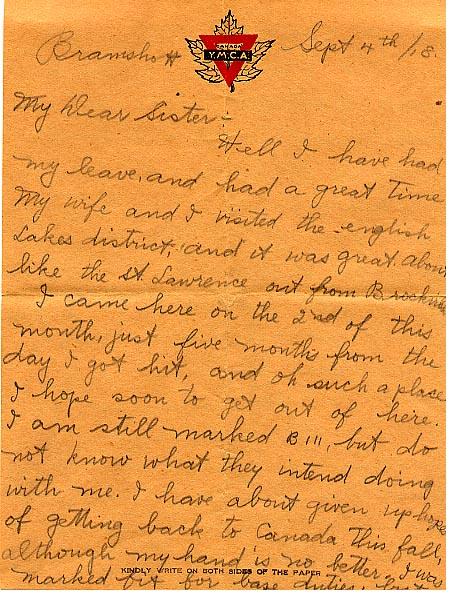 Bramshott
CANADA
Y.M.C.A.
Sept 4th /18.
My Dear Sister:-
Well I have had
my leave, and had a great time
My wife and I visited the english
Lakes district, and it was great. about
like the St. Lawrence out from Brockville
I came here on the 2nd of this
month, just five months from the
day I got hit, and oh such a place
I hope soon to get out of here.
I am still marked B III, but do
not know what they intend doing
with me. I have about given up hopes
of getting back to Canada this fall,
although my hand is no better. I was
KINDLY WRITE ON BOTH SIDES OF THE PAPER
marked fit for base duties, but